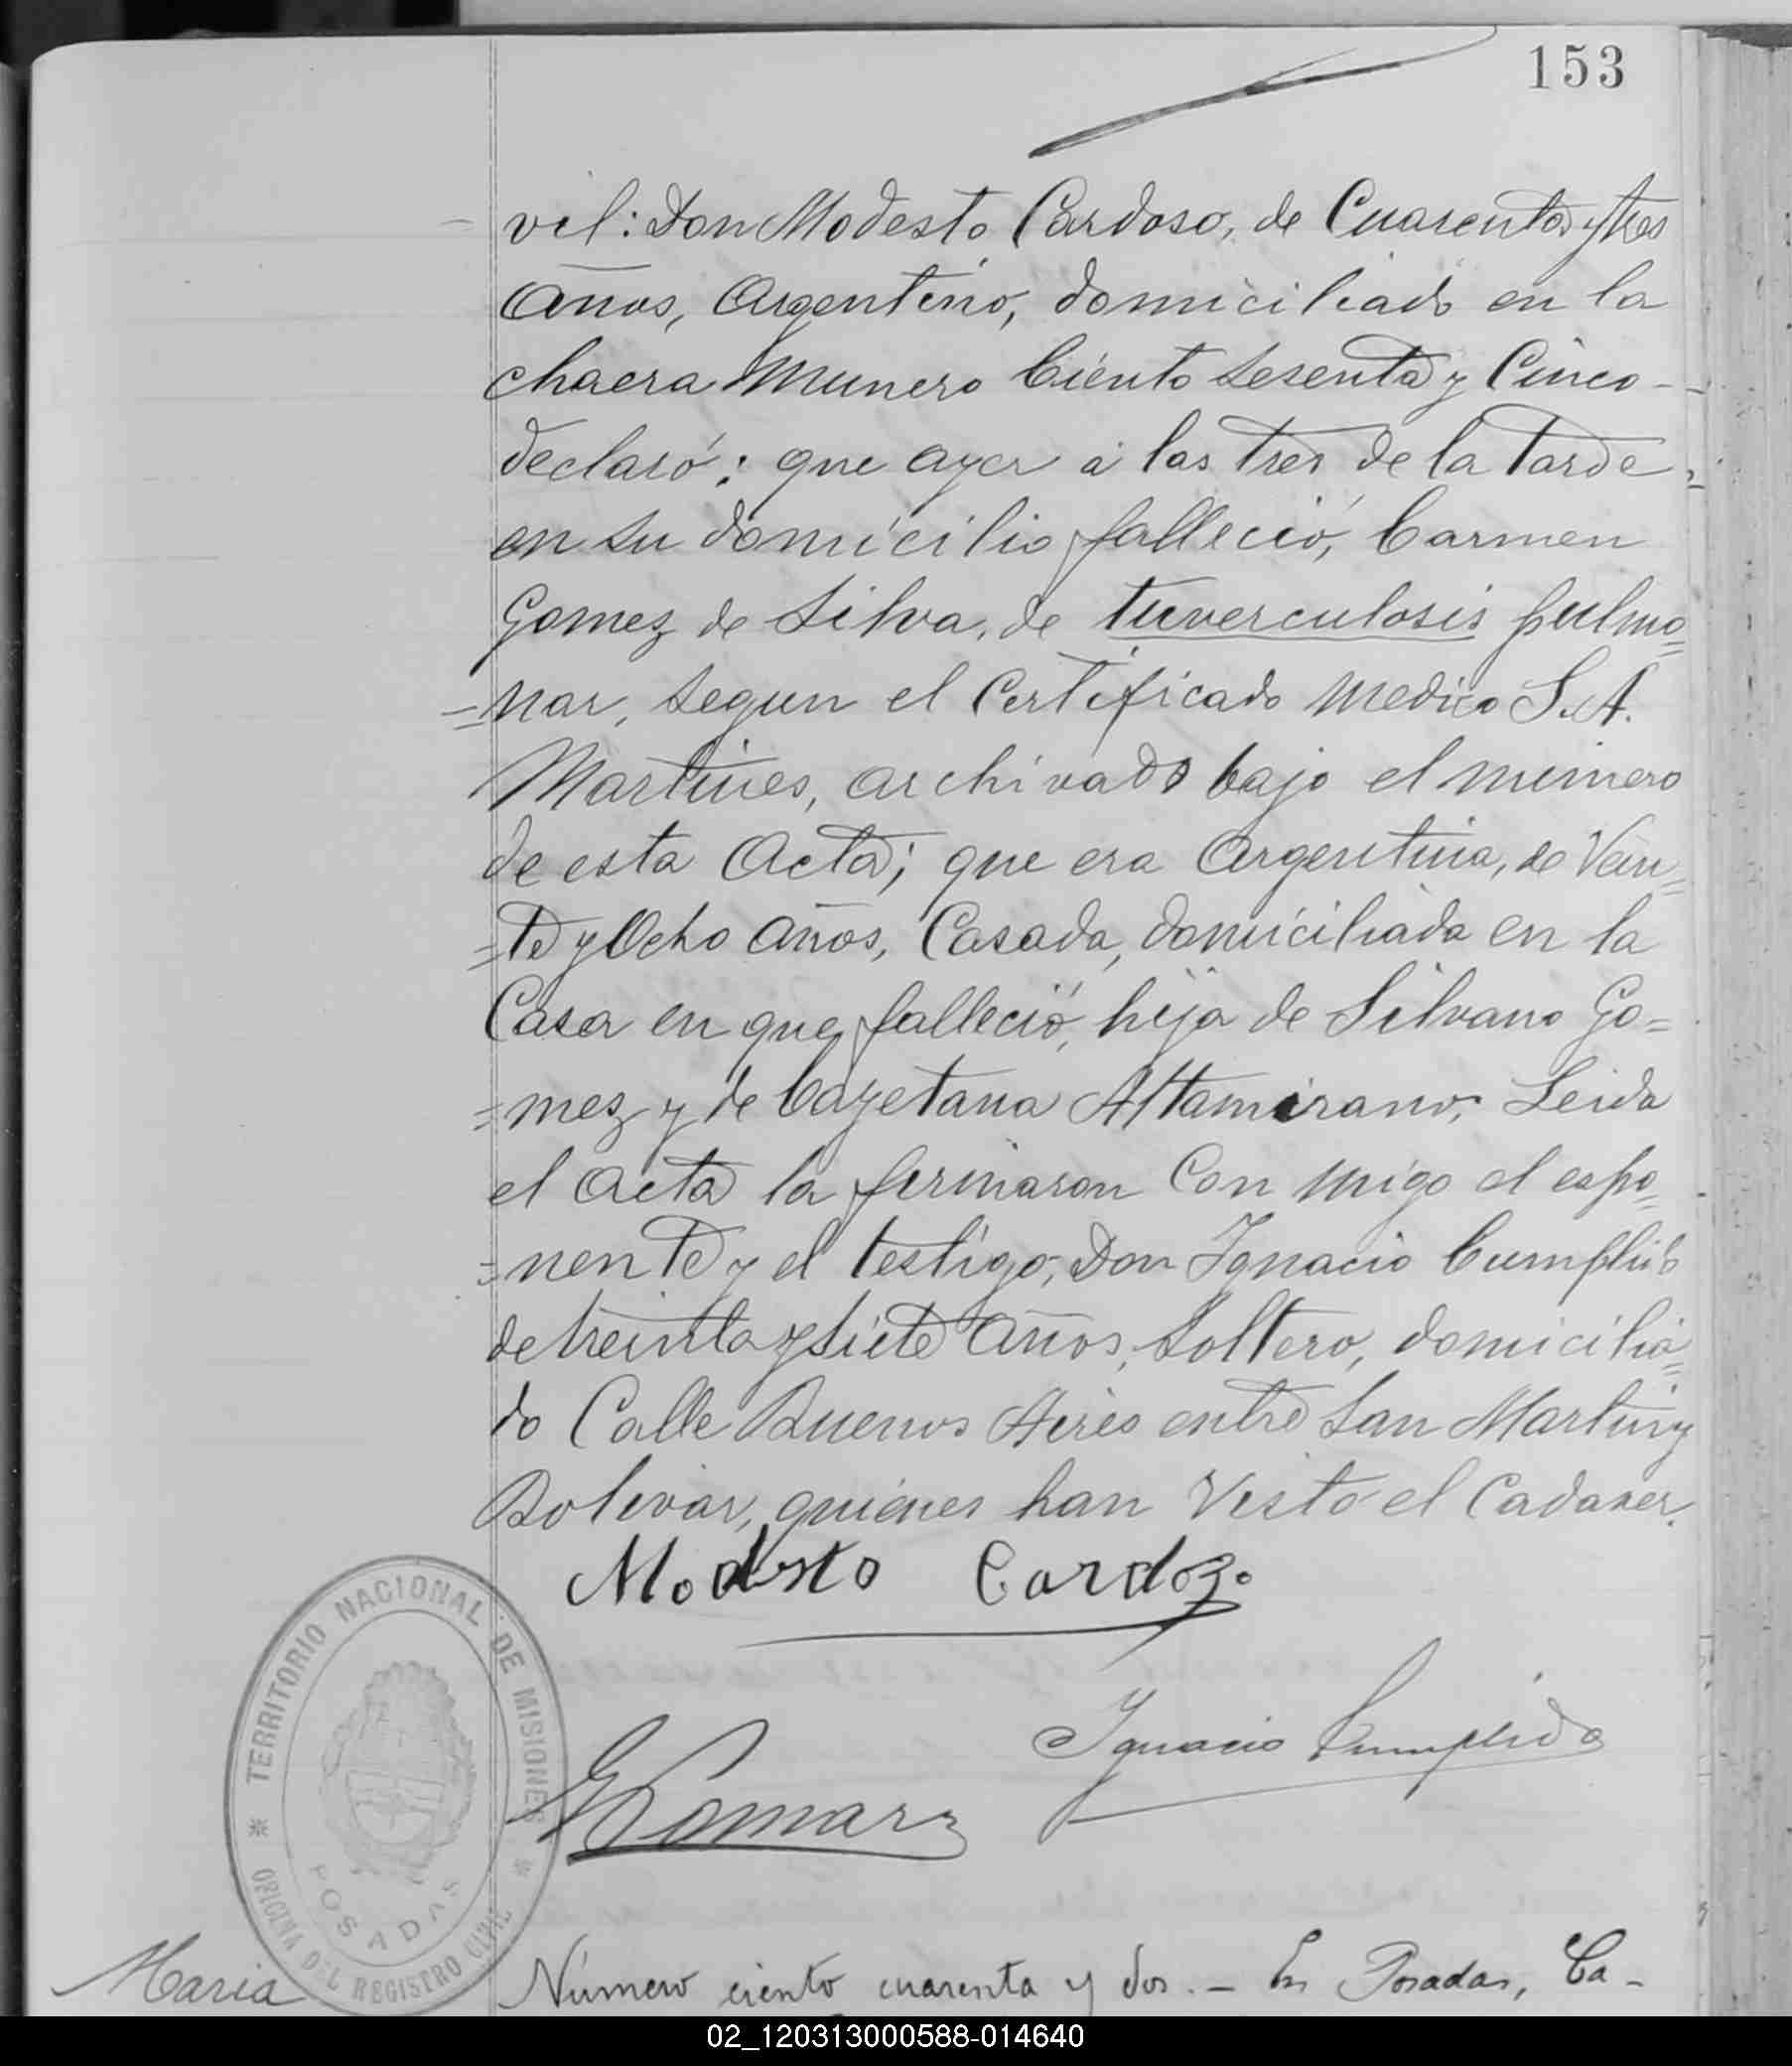 153
vil: Don Modesto Cardoso, de Cuarenta y tres
años, Argentino, domiciliado en la
chacra Munero Ciento Sesenta y Cinco -
declaró: que ayer á las tres de la tarde
en su domicilio falleció, Carmen
Gomez de Silva, de tuverculosis pulmo=
=nar, segun el Certificado Medico S. A.
Martines, archivado bajo el numero
de esta Acta; que era Argentina, de Vein=
=te y Ocho años, Casada, domiciliada en la
Casa en que falleció, hija de Silvano Go=
=mez y de Cayetana Altamirano; Leida
el Acta la firmaron Con migo el espo=
=nente y el testigo, Don Ignacio Cumplido
de treinta y siete años, Soltero, domicilia=
do Calle Buenos Aires entre San Martin y
Bolivar, quienes han Visto el Cadaver.
Modesto Cardozo
Ignacio Cumplido
TERRITORIO NACIONAL DE MISIONES
POSADAS
OFICINA DEL REGISTRO CIVIL
Maria
Número ciento cuarenta y dos. - En Posadas, Ca-
02_120313000588-014640